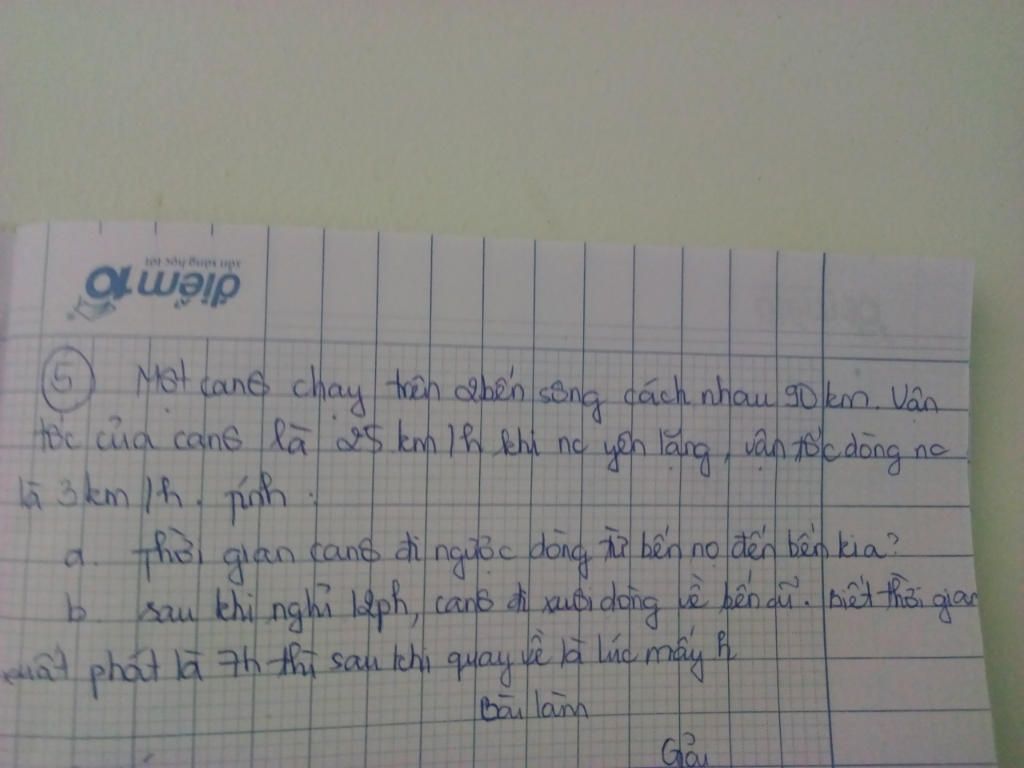 điểm 10
sẵn sàng học tốt
5 Một canô chạy trên 2 bến sông cách nhau 90 km. Vận
tốc của canô là 25 km/h khi nc yên lặng, vận tốc dòng nc
là 3 km/h. Tính:
a. Thời gian canô đi ngược dòng từ bến nọ đến bến kia?
b. Sau khi nghỉ 12ph, canô đi xuôi dòng về bến cũ. Biết thời gian
xuất phát là 7h thì sau khi quay về là lúc mấy h
Bài làm
Giải